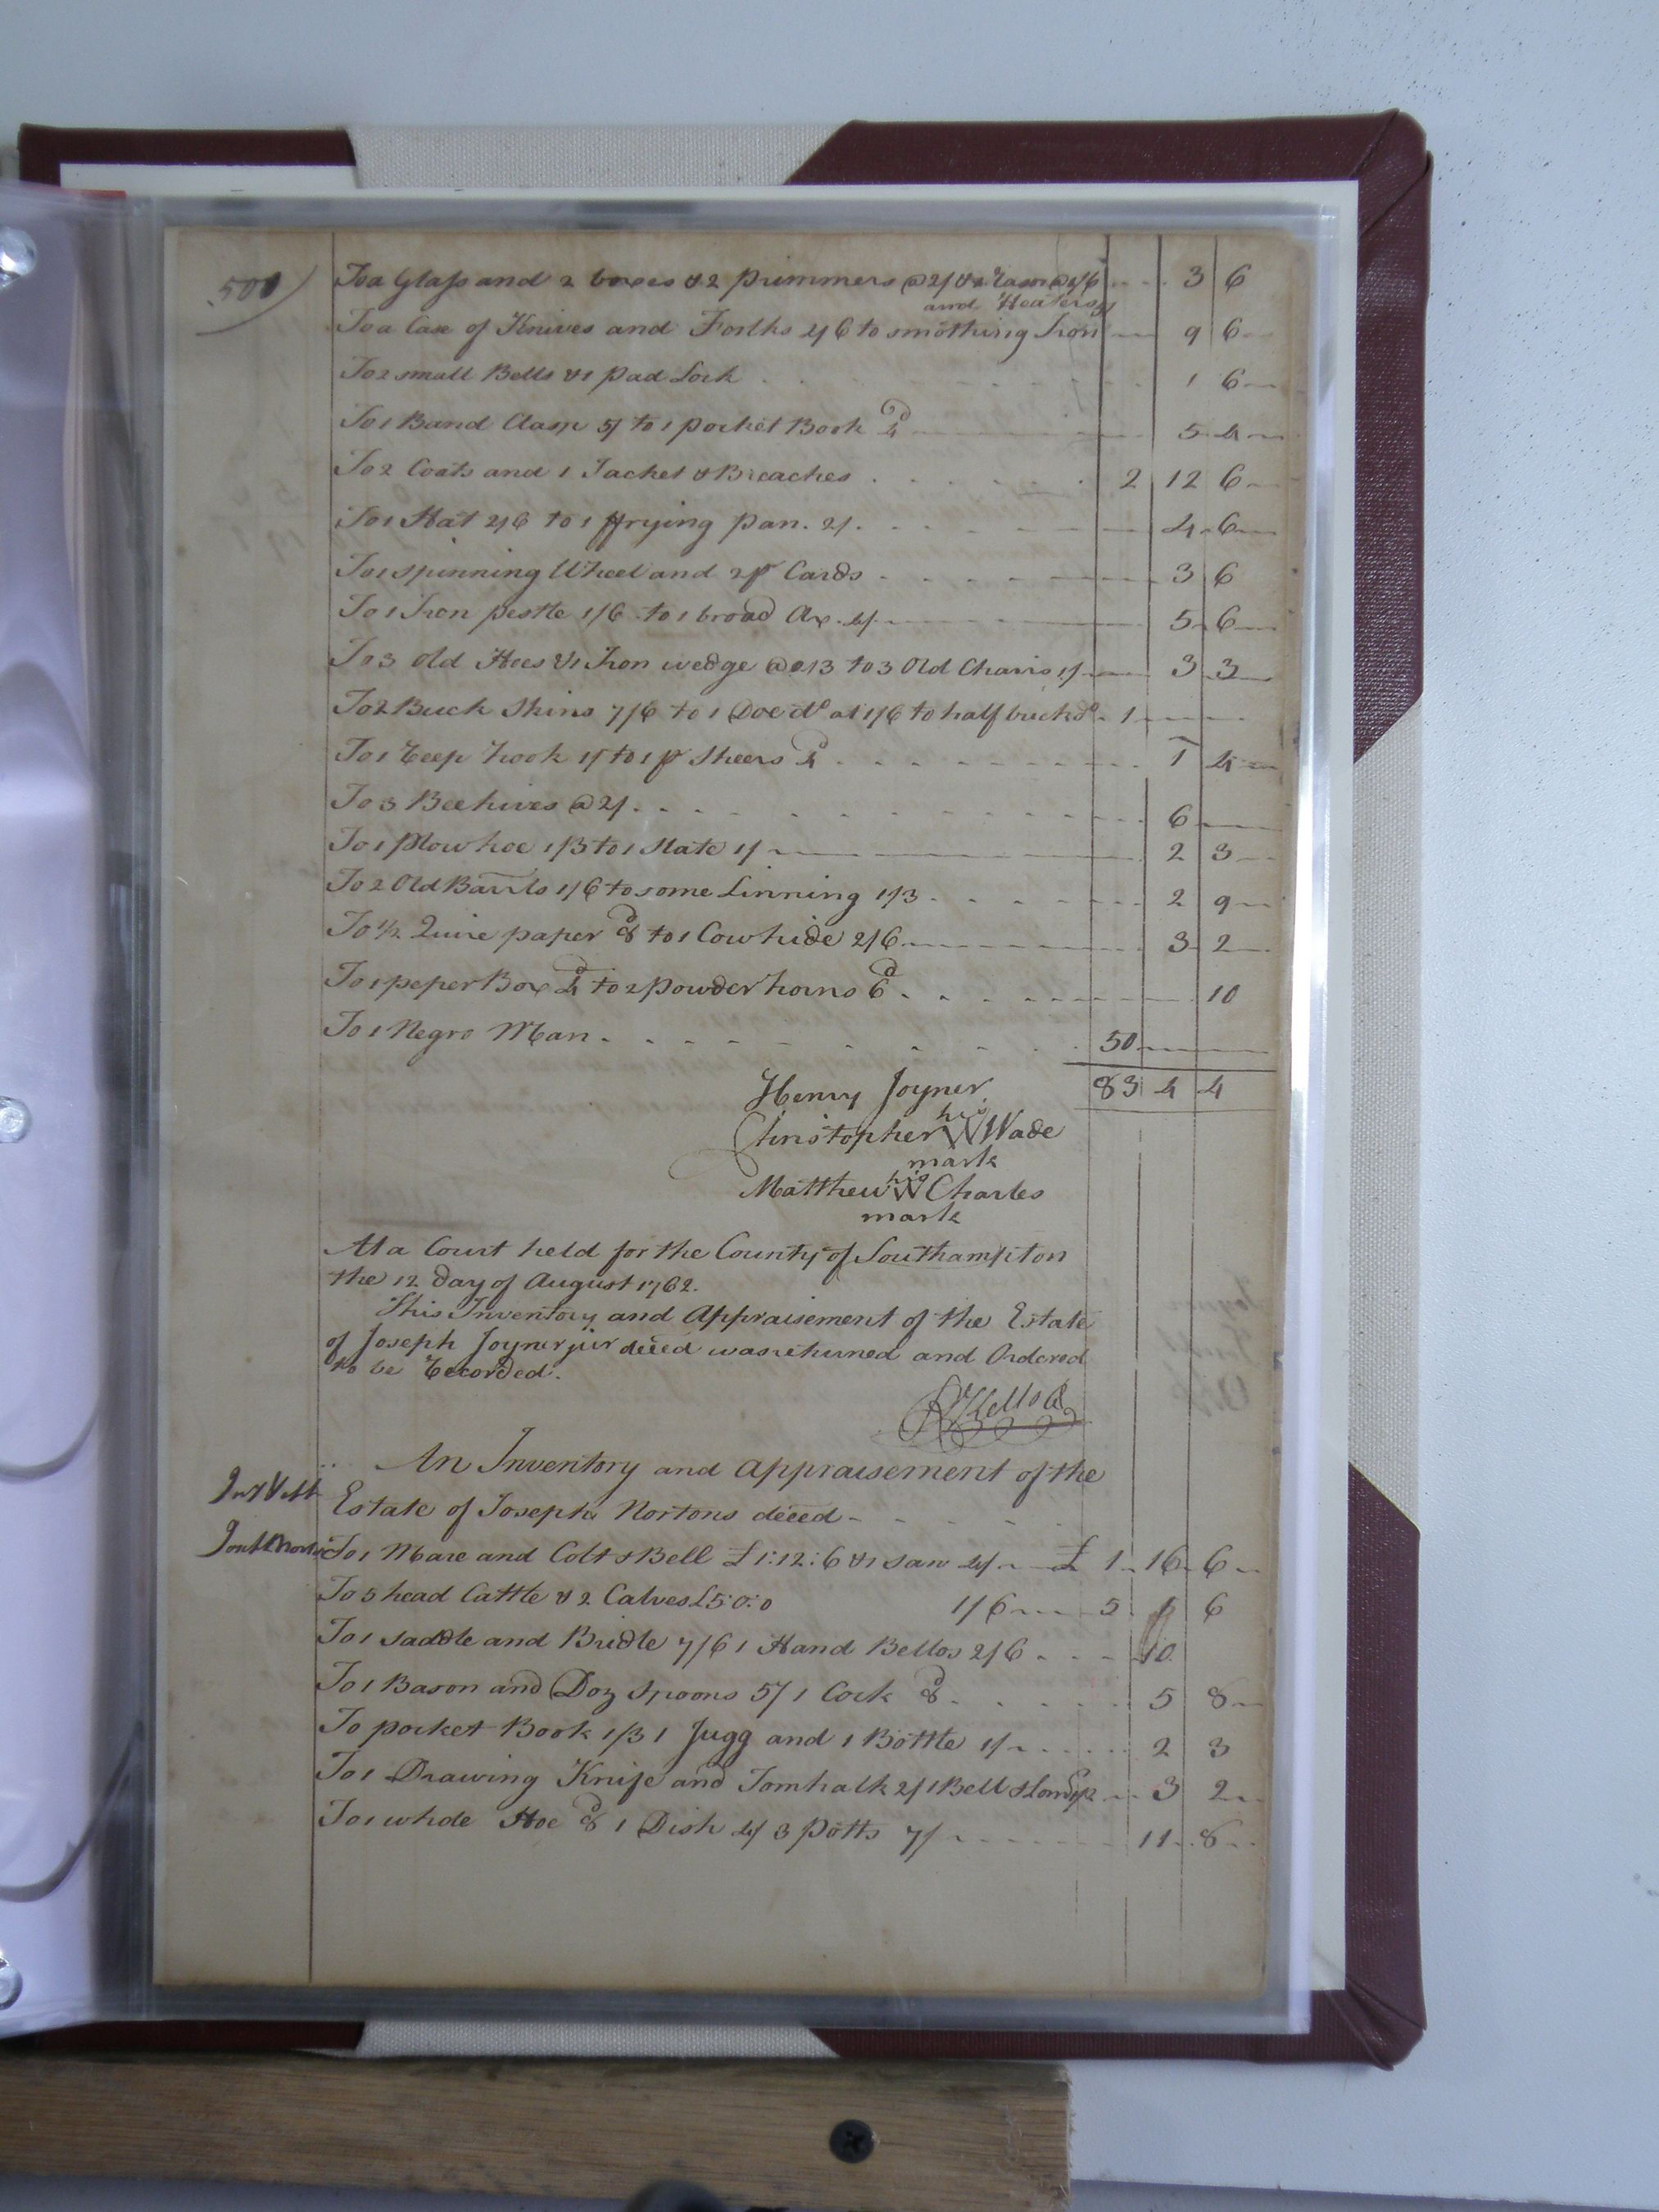 500
To a Glass and 2 boxes & 2 primmers @ 2/ & a @ 1/6 3 6
and Heaters 7/
To a Case of Knives and Forths 2/6 to smothing Iron 9 6
To 2 small Bells & 1 pad Lock 1 6
To 1 Band Clasp 5/ to 1 pocket Book 4d 5 4
To 2 Coats and 1 Jacket & Breaches 2 12 6
To 1 Hat 2/6 to 1 ffrying pan. 2/. 4 6
To 1 spinning Wheel and 2 pr Cards 3 6
To 1 Iron pestle 1/6 to 1 broad Ax. 4/ 5 6
To 3 Old Hoes & 1 Iron wedge @ 2/3 to 3 Old Chairs 1/ 3 3
To 2 Buck Skins 7/6 to 1 Doe do at 1/6 to half buck do 1
To 1 Reep hook 1/ to 1 pr Sheers 4d 1 4
To 3 Beehives @ 2/ 6
To 1 plow hoe 1/3 to 1 Slate 1/ 2 3
To 2 Old Barrls 1/6 to some Linning 1/3 2 9
To 1/2 Quire paper 8d to 1 Cowhide 2/6 3 2
To 1 peper Box 4d to 2 powder horns 6d 10
To 1 Negro Man 50
83 4 4
Henry Joyner
his
Christopher W Wade
mark
his
Matthew W Charles
mark
At a Court held for the County of Southampton
the 12 day of August 1762.
This Inventory and Appraisement of the Estate
of Joseph Joyner jur deced was returned and Ordered
to be Recorded.
An Inventory and Appraisement of the
Estate of Joseph Nortons deced
To 1 Mare and Colt & Bell £1:12:6 & 1 saw 4/ £ 1 16 6
To 5 head Cattle & 2 Calves £5:0:0 1/6 5 1 6
To 1 saddle and Bridle 7/6 1 Hand Bellos 2/6 10
To 1 Bason and Doz Spoons 5/ 1 Cock 8d 5 8
To pocket Book 1/3 1 Jugg and 1 Bottle 1/ 2 3
To 1 Drawing Knife and Tomhalk 2/ 1 Bell 3 2
To 1 whde Hoe 8d 1 Dish 4/ 3 Potts 7/ 11 8